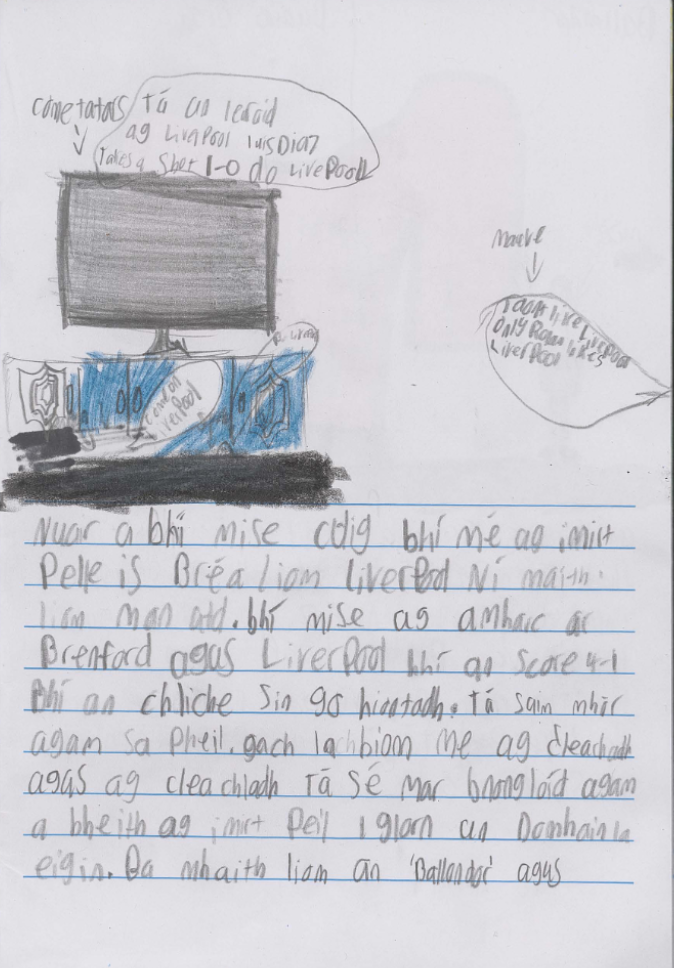 cometators
Tá an leroid
ag LiverPool luis Diaz
Takes a Shot 1-0 do LivePool
maeve
I dont like LiverPool
only Rohan likes
LiverPool
come on
LiverPool
Nuar a bhí mise cúig bhí mé ag imirt
Peile is Bréa liom LiverPool Ní maith
liom man utd. bhí mise ag amharc ar
Brenford agus LiverPool bhí an score 4-1
Bhí an chliche sin go hiontadh. Tá suim mhór
agam sa Pheil. gach lá bhíom mé ag cleachadh
agus ag cleachladh Tá sé mar bronglóid agam
a bheith ag imirt Peil i glorn an Domhain la
eigin. Ba mhaith liom an 'Ballondor' agus